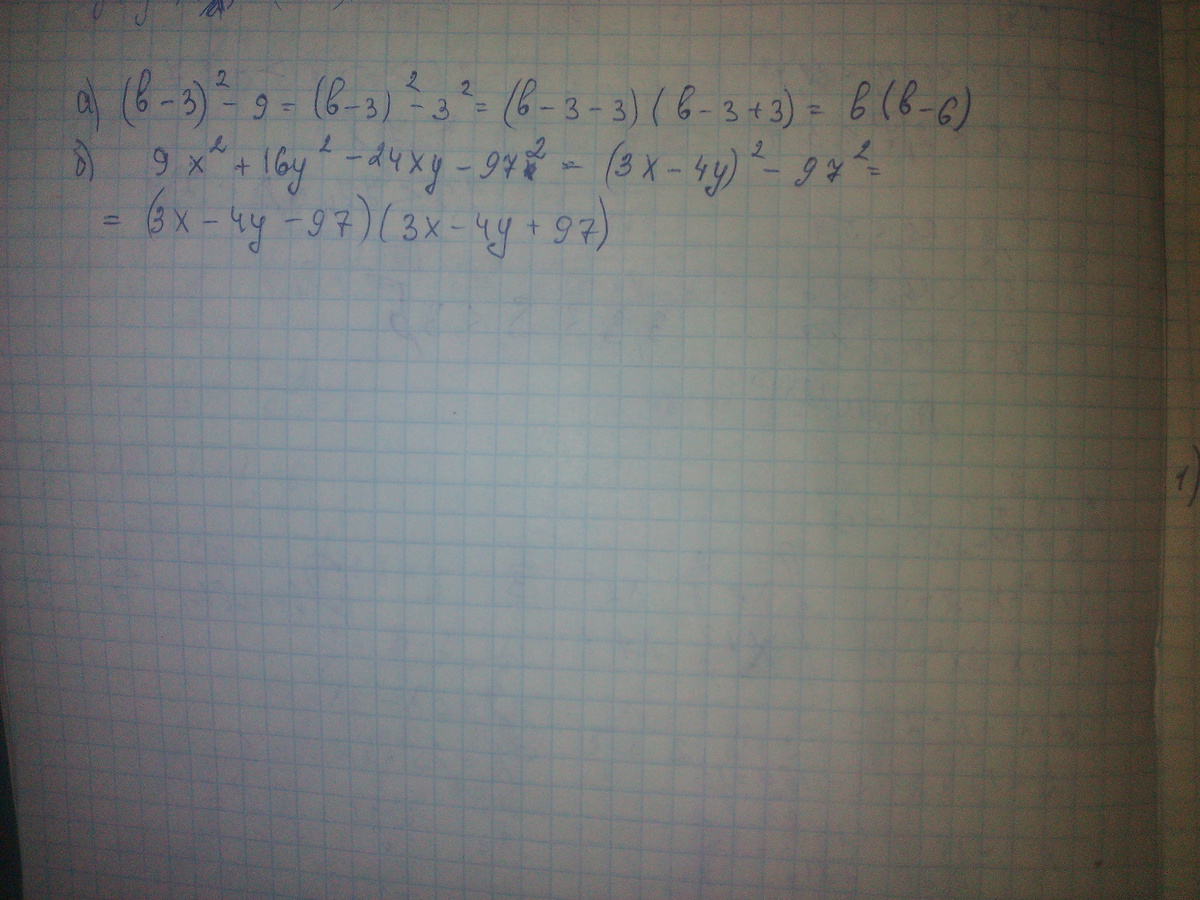 а) (в-3)² - 9 = (в-3)² - 3² = (в-3-3)(в-3+3) = в(в-6)
б) 9x² + 16y² - 24xy - 97² = (3x-4y)² - 97² =
= (3x-4y-97)(3x-4y+97)
1)